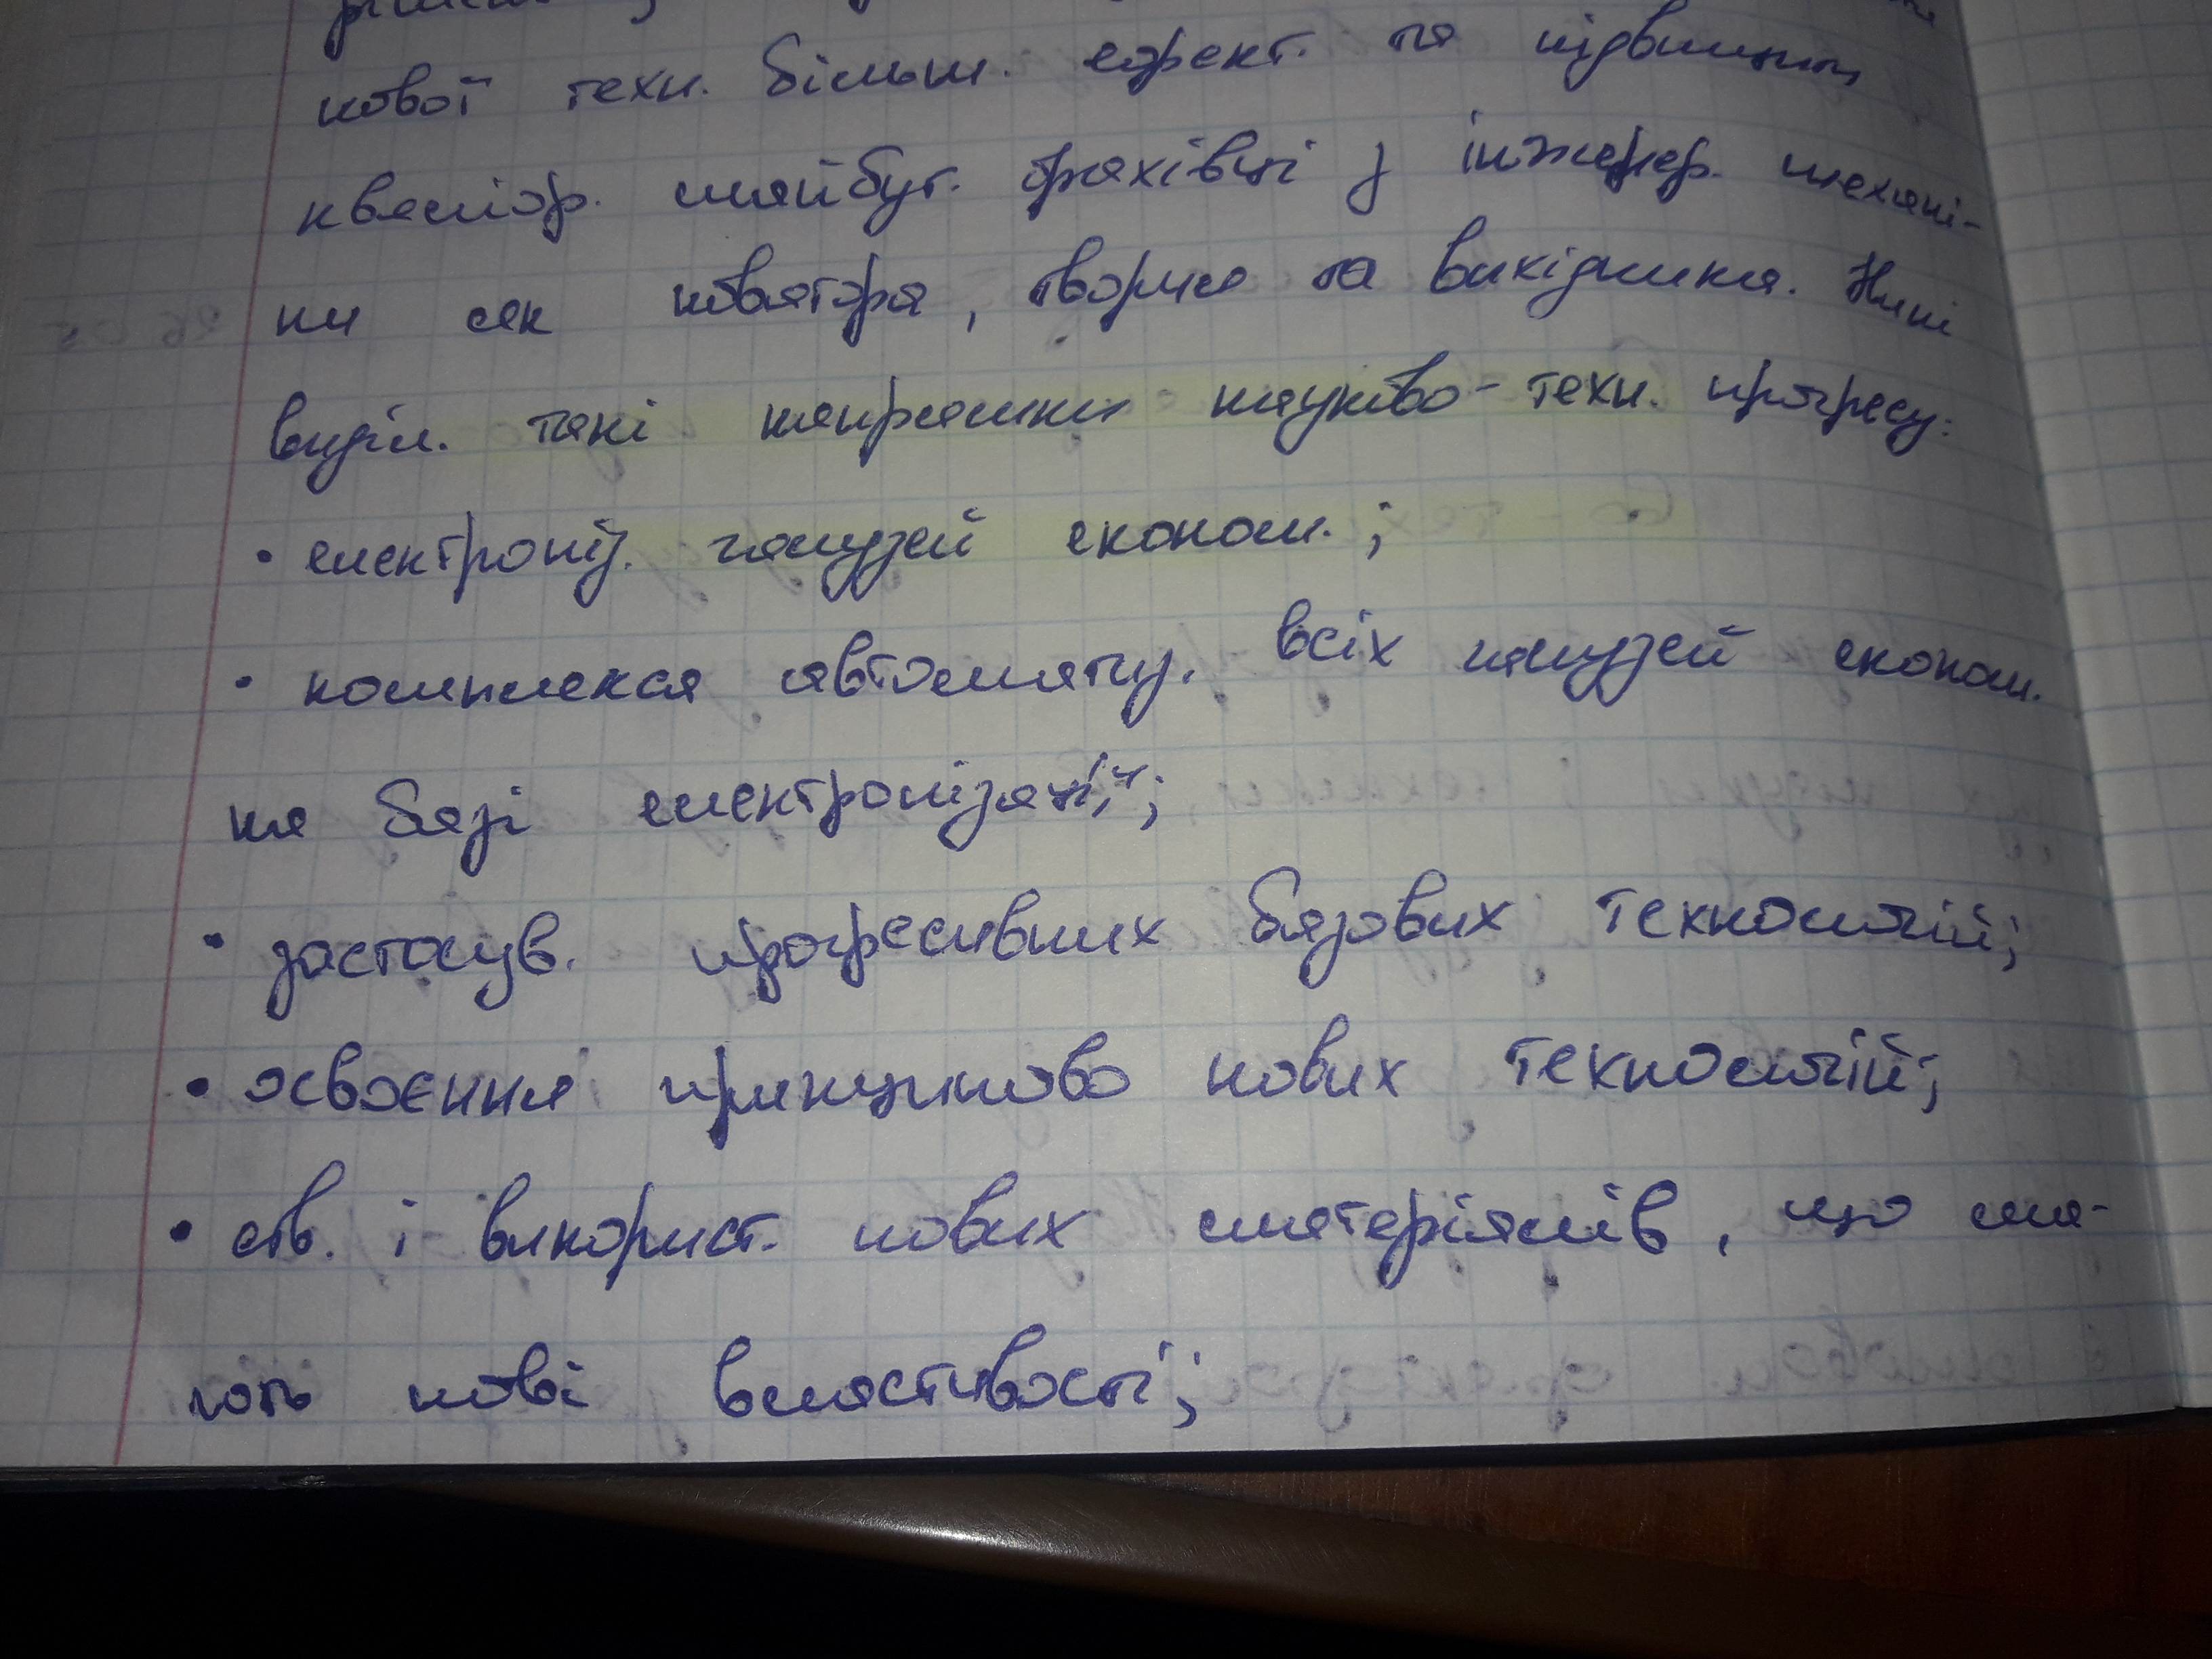 нової техн. більш. ефект. та підвищить
кваліф. майбут. фахівці з інженер. механі-
ки як новатора, творця та вихідника. Нині
виділ. такі напрямки науково-техн. прогресу:
• електроніз. галузей економ.;
• комплекся автоматиз. всіх галузей економ.
на базі електронізації;
• застосув. прогресивних базових технологій;
• освоєння принципово нових технологій;
• ств. і використ. нових матеріалів, що ма-
ють нові властивості;